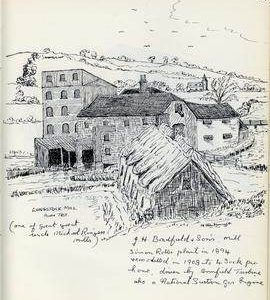 Longbrook Mill
from TRO
(one of great great
uncle
mills)
J.H. Bradfield & Sons mill
Simon Roller plant in 1894
remodelled in 1908 to 4 Sack per
hour, driven by Turbine
also a National Suction Gas Engine